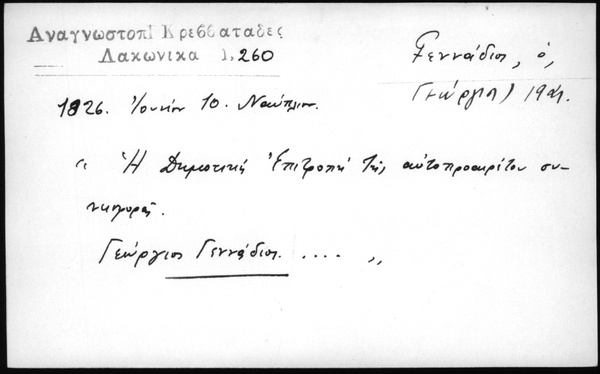 Αναγνωστοπ! Κρεββαταδες
Λακωνικα 1,260
Γεννάδιος, ὁ,
Γεώργιος)
1826. Ἰουνίου 10. Ναύπλιον.
"Ἡ Δημοτικὴ Ἐπιτροπὴ τῆς αὐτοπροαιρέτου συ-
νεισφορᾶς.
Γεώργιος Γεννάδιος. .... "